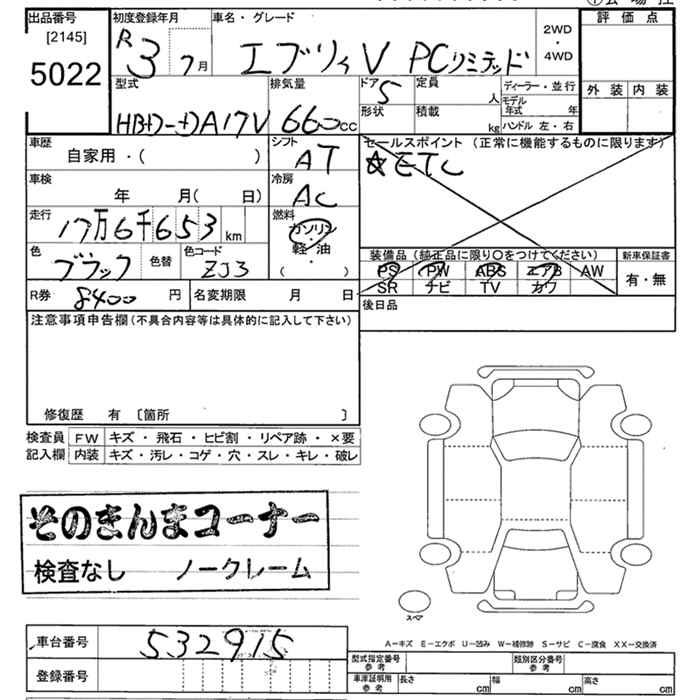 出品番号 初度登録年月 車名・グレード 評価点
[2145] R3 7月 エブリィV PCリミテッド 2WD・4WD
5022 外装 内装
型式 排気量 ドア 定員 ディーラー・並行
5 人 モデル年式 年
660cc 形状 積載 kg ハンドル 左・右
車歴 シフト セールスポイント(正常に機能するものに限ります)
自家用・( ) AT ☆ETC
車検 冷房
年 月( 日) AC
走行 燃料
17万6千653km ガソリン・軽油・( )
色 色替 色コード 装備品(純正品に限り〇をつけてください) 新車保証書
ブラック ZJ3 PS PW ABS エアB AW 有・無
SR ナビ TV カワ
R券 8400円 名変期限 月 日 後日品
注意事項申告欄(不具合内容等は具体的に記入して下さい)
修復歴 有 〔箇所 〕
検査員 FW キズ・飛石・ヒビ割・リペア跡・×要
記入欄 内装 キズ・汚レ・コゲ・穴・スレ・キレ・破レ
そのまんまコーナー
検査なし ノークレーム
スペア
A-キズ E-エクボ U-凹み W-補修跡 S-サビ C-腐食 XX-交換済
車台番号 532915
型式指定番号 参考 類別区分番号 参考
登録番号 車庫証明用 参考 長さ cm 幅 cm 高さ cm